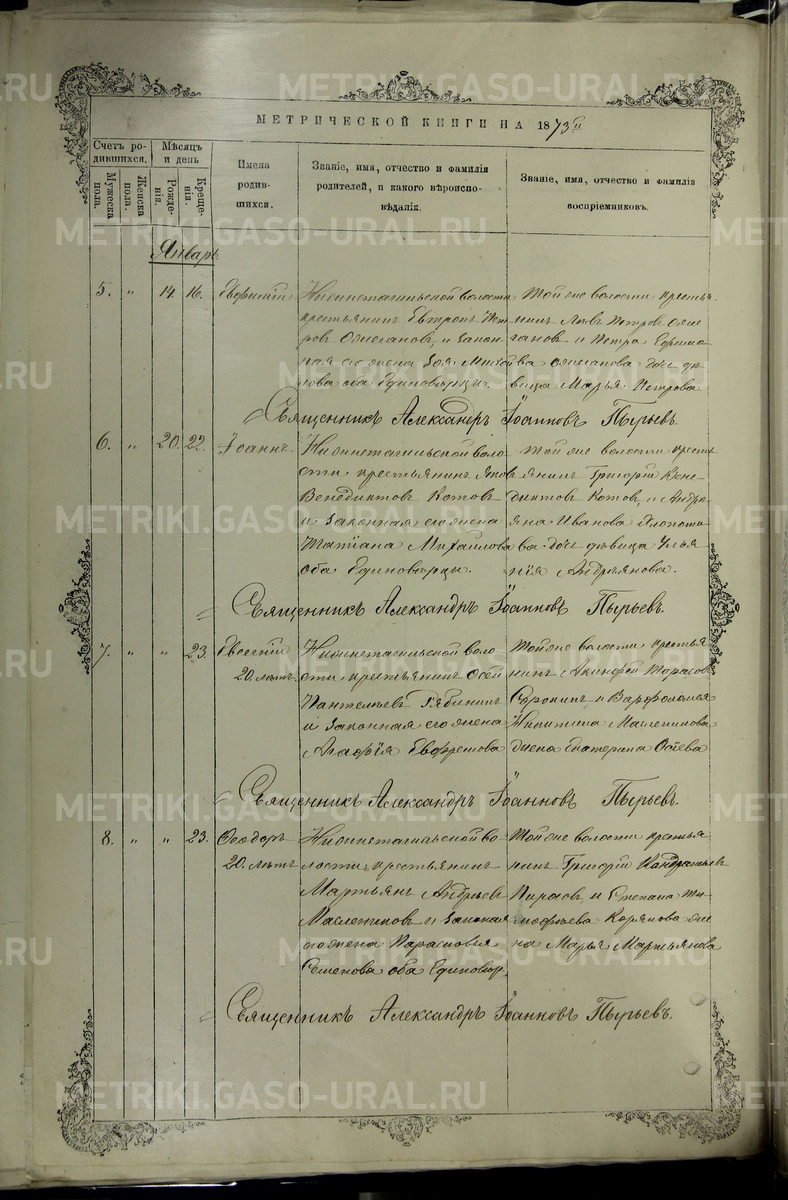 METRIKI.GASO-URAL.RU
МЕТРИЧЕСКОЙ КНИГИ НА 1873й
Счетъ ро-
дившихся.
Мужеска
пола.
Женска
пола.
Мѣсяцъ
и день
Рожде-
нія.
Креще-
нія.
Имена
родив-
шихся.
Званіе, имя, отчество и фамилія
родителей, и какого вѣроиспо-
вѣданія.
Званіе, имя, отчество и фамилія
воспріемниковъ.
Январь.
5. " 14. 16.
Нижнетагильской волости
крестьянинъ Евтропъ Пет
ровъ и закон
ная его жена Зоя Михай
лова оба Единовѣрцы.
Той же волости крестья-
нинъ Петровъ
и Петра
дочь дѣ
вица Марья Петрова
Священникъ Александръ Іоанновъ Пырьевъ.
6. " 20. 22.
Іоаннъ
Нижнетагильской воло
сти крестьянинъ Яковъ
Венедиктовъ Котовъ
и законная его жена
Татіана Михайлова
оба Единовѣрцы.
Той же волости кресть
янинъ Григорій Вене-
диктовъ Котовъ, и Андре
яна Иванова
ва дочь дѣвица Улья
нія Андреянова.
Священникъ Александръ Іоанновъ Пырьевъ.
7. " " 23.
Евгеній
20 лѣтъ.
Нижнетагильской воло
сти крестьянинъ Осей
Пантелѣевъ Рябининъ
и законная его жена
Агафія
Той же волости крестья
нинъ Акинфей Тарасовъ
Сорокинъ и Варфоломея
Никитина Масленникова
жена Екатерина Осіева
Священникъ Александръ Іоанновъ Пырьевъ.
8. " " 23.
Ѳеодоръ
20. лѣтъ
Нижнетагильской во
лости крестьянинъ
Мартьянъ Андреевъ
Масленниковъ и законная
его жена Парасковья
Семенова оба Единовѣр.
Той же волости крестья
нинъ Григорій
и Степана Ти
мофѣева Корякова же
на Марья Мартьянова
Священникъ Александръ Іоанновъ Пырьевъ.